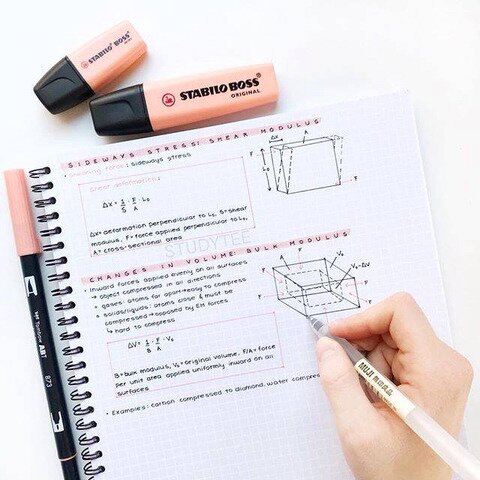 STABILO BOSS
STABILO BOSS
ORIGINAL
SIDEWAYS STRESS: SHEAR MODULUS
force: sideways stress
Shear deformation:
Δx = 1/S · F/A · L₀
Δx = deformation perpendicular to L₀, S = shear
modulus, F = force applied perpendicular to L₀,
A = cross-sectional area
Δx
A
F
L₀
F
STUDYTEE
CHANGES IN VOLUME: BULK MODULUS
• Inward forces applied evenly on all surfaces
→ object compressed in all directions
• gases: atoms far apart → easy to compress
• solids/liquids: atoms close & must be
compressed → opposed by EM forces
↳ hard to compress
ΔV = 1/B · F/A · V₀
B = bulk modulus, V₀ = original volume, F/A = force
per unit area applied uniformly inward on all
surfaces
F
A
F
V₀
V₀-ΔV
F
F
F
• Examples: carbon compressed to diamond, water compre
Tombow
ABT
873
MUJI